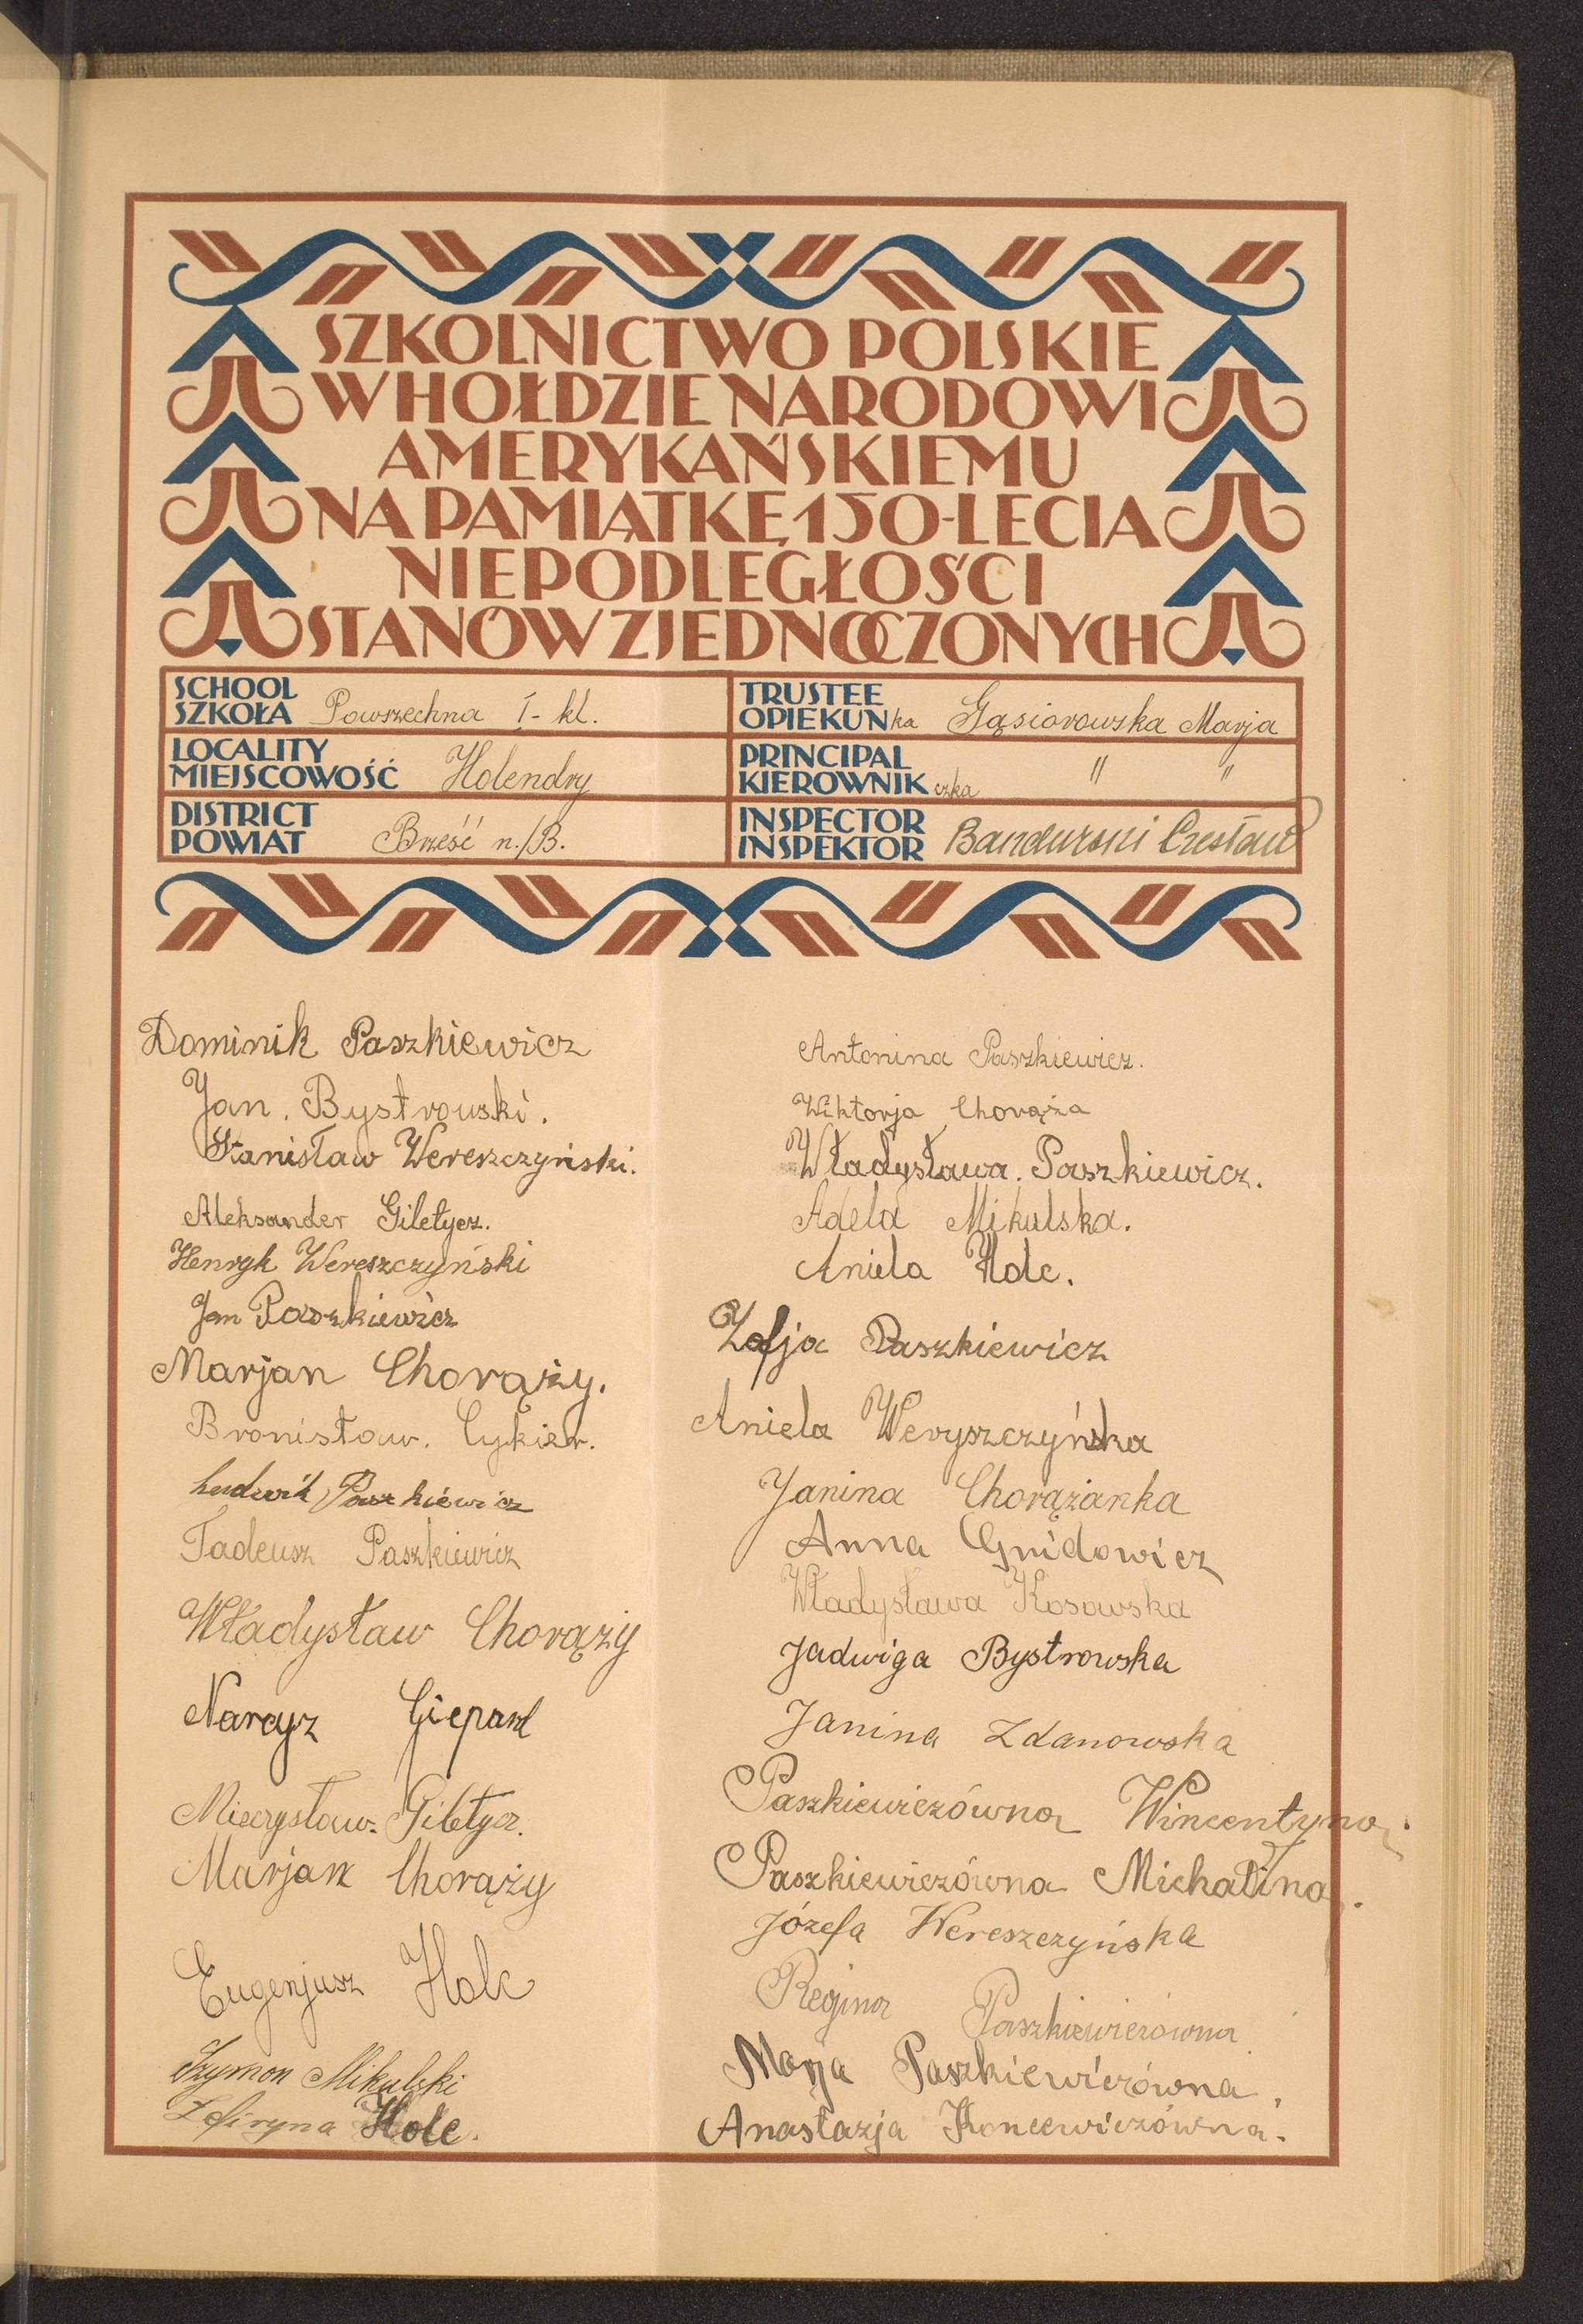 SZKOLNICTWO POLSKIE
W HOŁDZIE NARODOWI
AMERYKAŃSKIEMU
NA PAMIĄTKĘ 150-LECIA
NIEPODLEGŁOŚCI
STANÓW ZJEDNOCZONYCH
SCHOOL
SZKOŁA Powszechna I- kl.
LOCALITY
MIEJSCOWOŚĆ Holendry
DISTRICT
POWIAT Brześć n./B.
TRUSTEE
OPIEKUNka Gąsiorowska Marja
PRINCIPAL
KIEROWNIKczka " "
INSPECTOR
INSPEKTOR Bandurski Czesław
Dominik Paszkiewicz
Jan. Bystrowski.
Stanisław Wereszczyński.
Aleksander Giletycz.
Henryk Wereszczyński
Jan Paszkiewicz
Marjan Chorąży.
Bronisław. Cykier.
Ludwik Paszkiewicz
Tadeusz Paszkiewicz
Władysław Chorąży
Narcyz Giepard
Mieczysław. Giletycz.
Marjan Chorąży
Eugenjusz Holc
Szymon Mikulski
Zefiryna Holc.
Antonina Paszkiewicz.
Wiktorja Chorąża
Władysława. Paszkiewicz.
Adela Mikulska.
Aniela Holc.
Zofja Paszkiewicz
Aniela Weryszczyńska
Janina Chorążanka
Anna Gnidowicz
Władysława Kosowska
Jadwiga Bystrowska
Janina Zdanowska
Paszkiewiczówna Wincentyna.
Paszkiewiczówna Michalina.
Józefa Wereszczyńska
Regina Paszkiewiczówna
Marja Paszkiewiczówna.
Anastazja Koncewiczówna.